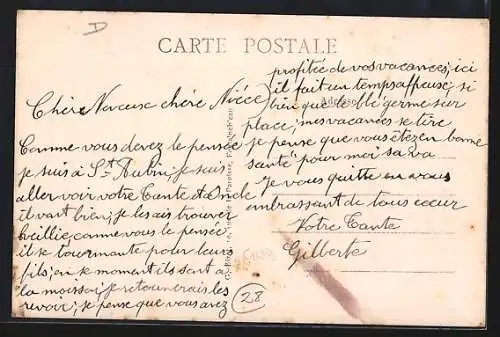 D
CARTE POSTALE
Chère Naveuse chère Nièce
Comme vous devez le pensée
je suis à St Aubin, je suis
aller voir votre Tante et Oncle
il vont bien; je les ais trouver
vieillie, comme vous le pensée
il se tourmante pour leurs
fils; en se moment ils sont à
la moisson, je retournerais les
revoir; je pense que vous avez
profitée de vos vacances; ici
il fait un temps affreuse; si
bien que le blé germe sur
place; mes vacances se tire
je pense que vous êtez en bonne
santé pour moi sa va
Je vous quitte en vous
embrassant de tous coeur
Votre Tante
Gilberte
Adresse
28